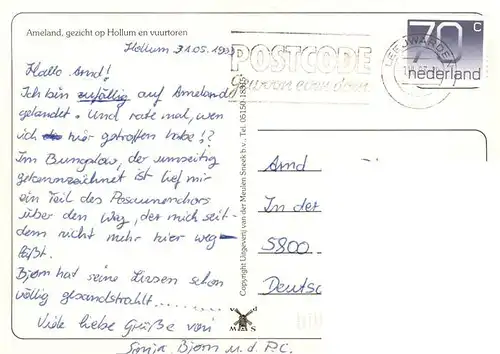 Ameland, gezicht op Hollum en vuurtoren
Hollum 31.05.1993
Hallo Arnd!
Ich bin zufällig auf Ameland
gelandet. Und rate mal, wen
ich hier getroffen habe!?
Im Bungalow, der umseitig
gekennzeichnet ist lief mir
ein Teil des Posaunenchors
über den Weg, der mich seit-
dem nicht mehr hier weg-
läßt.
Bjørn hat seine Linsen schon
völlig gesandstrahlt....
Viele liebe Grüße von
Sonja, Bjørn u. d. P.C.
Copyright Uitgeverij van der Meulen Sneek b.v., Tel. 05150-18315
MS
POSTCODE
LEEUWARDEN
70 c
nederland
Arnd
In der
5800
Deutsc